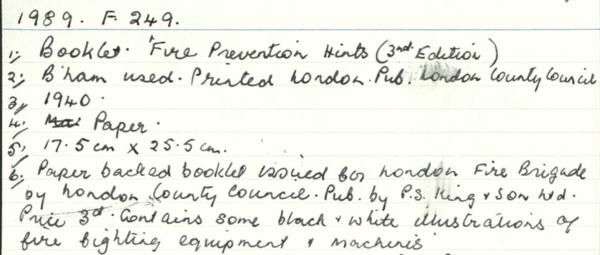 1989. F. 249.
1; Booklet. 'Fire Prevention Hints (3rd Edition)
2; B'ham used. Printed London. Pub. London County Council
3, 1940.
4, Paper.
5, 17.5cm x 25.5cm.
6; Paper backed booklet issued for London Fire Brigade
by London County Council. Pub. by P.S. King & Son Ltd.
Price 3d. Contains some black & white illustrations of
fire fighting equipment &